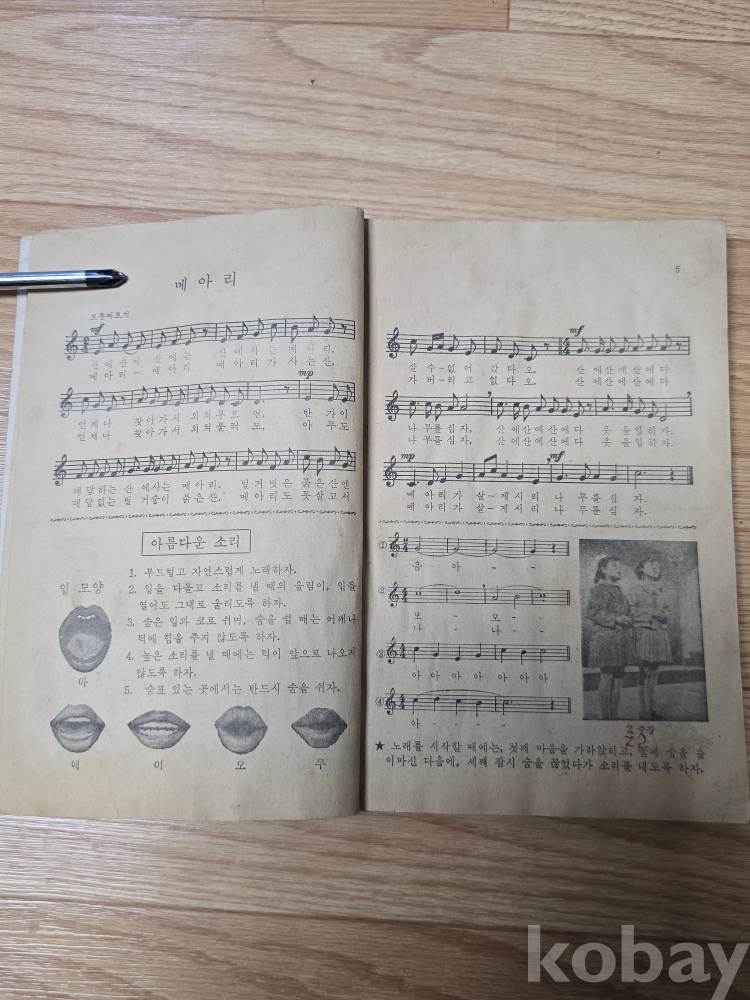 메 아 리
보통빠르기
mf
산에산에 산에는 산에사는 메아리,
메아리- 메아리 메아리가 사는산,
mp
언제나 찾아가서 외쳐부르면, 반가이
언제나 찾아가서 외쳐불러도, 아무도
대답하는 산에사는 메아리, 벌거벗은 붉은산엔
대답없는 벌거숭이 붉은산, 메아리도 못살고서
아름다운 소리
입 모양
1. 부드럽고 자연스럽게 노래하자.
2. 입을 다물고 소리를 낼 때의 울림이, 입을
열어도 그대로 울리도록 하자.
3. 숨은 입과 코로 쉬며, 숨을 쉴 때는 어깨나
턱에 힘을 주지 않도록 하자.
4. 높은 소리를 낼 때에는 턱이 앞으로 나오지
않도록 하자.
5. 숨표 있는 곳에서는 반드시 숨을 쉬자.
아
에 이 오 우
5
mf
살수-없어 갔다오. 산에산에산에다
가버-리고 없다오. 산에산에산에다
나무를심자, 산에산에산에다 옷을입히자.
나무를심자, 산에산에산에다 옷을입히자.
mp
mf
메아리가 살-게시리 나무를심자.
메아리가 살-게시리 나무를심자.
①
음 - 아 - -
②
모 - 모 - -
나 - 나 - -
③
아 아 아 아 아 아 아
④
아 - - - -
2 중창
★ 노래를 시작할 때에는, 첫째 마음을 가라앉히고, 둘째 숨을 들
이마신 다음에, 세째 잠시 숨을 끊었다가 소리를 내도록 하자.
kobay